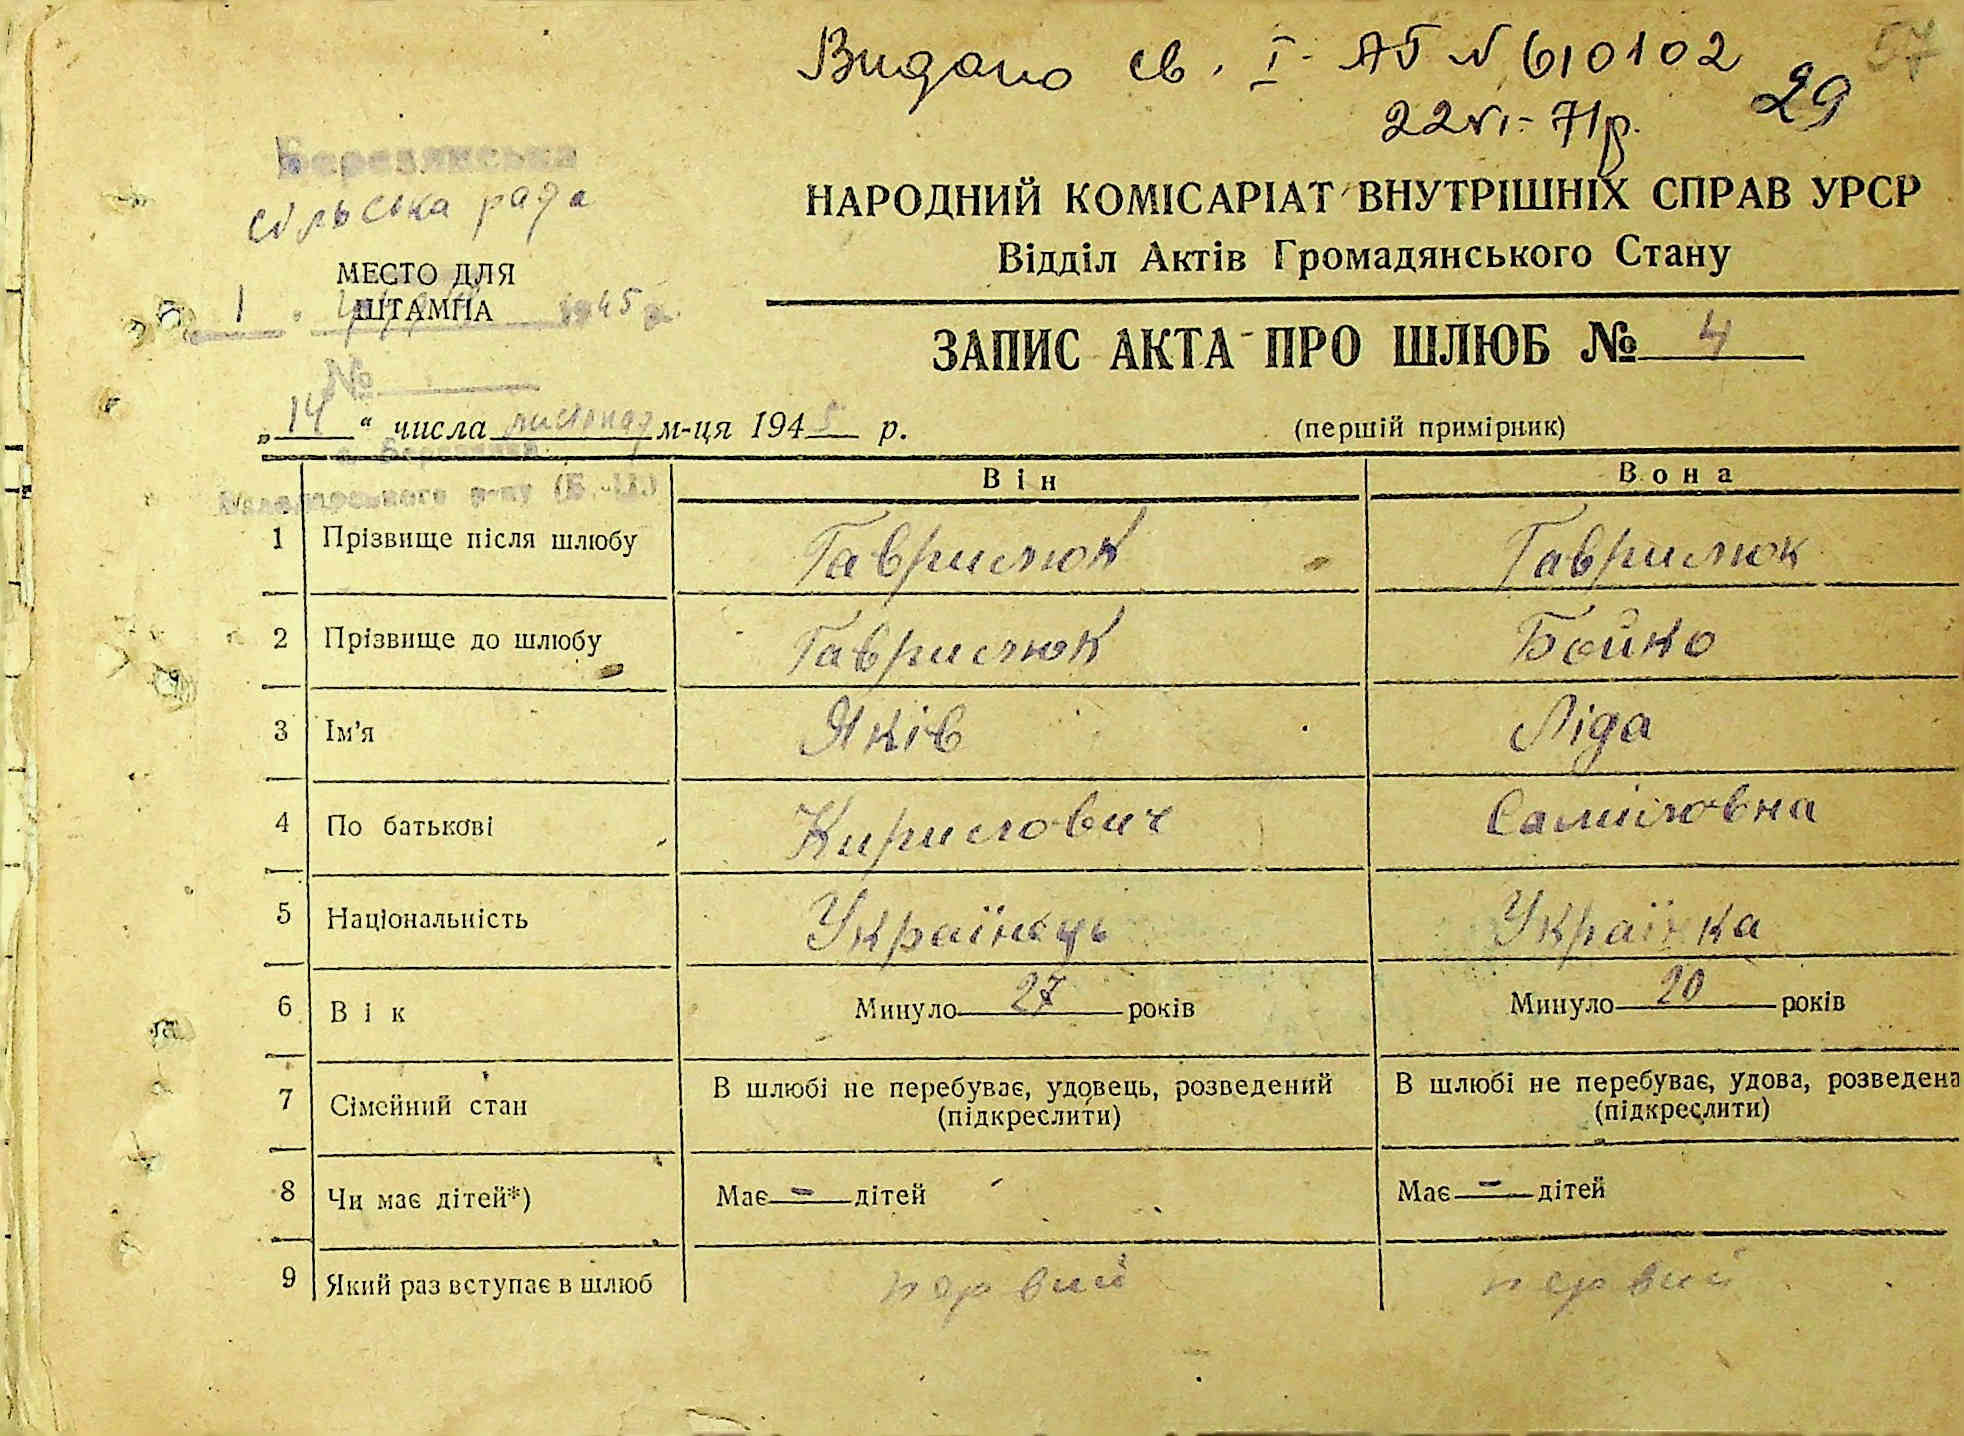 Видано св. I-АБ N 610102
57
22 VI-71р.
29
Березянська
сільська рада
НАРОДНИЙ КОМІСАРІАТ ВНУТРІШНІХ СПРАВ УРСР
Відділ Актів Громадянського Стану
МЕСТО ДЛЯ
ШТАМПА
1 1945 р.
ЗАПИС АКТА ПРО ШЛЮБ № 4
№
„14“ числа листопад м-ця 1945 р.
(першій примірник)
р-ну
Він Вона
1 Прізвище після шлюбу Гаврилюк Гаврилюк
2 Прізвище до шлюбу Гаврилюк Бойко
3 Ім'я Яків Ліда
4 По батькові Кирилович Саміловна
5 Національність Українець Українка
6 Вік Минуло 27 років Минуло 20 років
7 Сімейний стан В шлюбі не перебуває, удовець, розведений В шлюбі не перебуває, удова, розведена
(підкреслити) (підкреслити)
8 Чи має дітей*) Має - дітей Має - дітей
9 Який раз вступає в шлюб первий первий